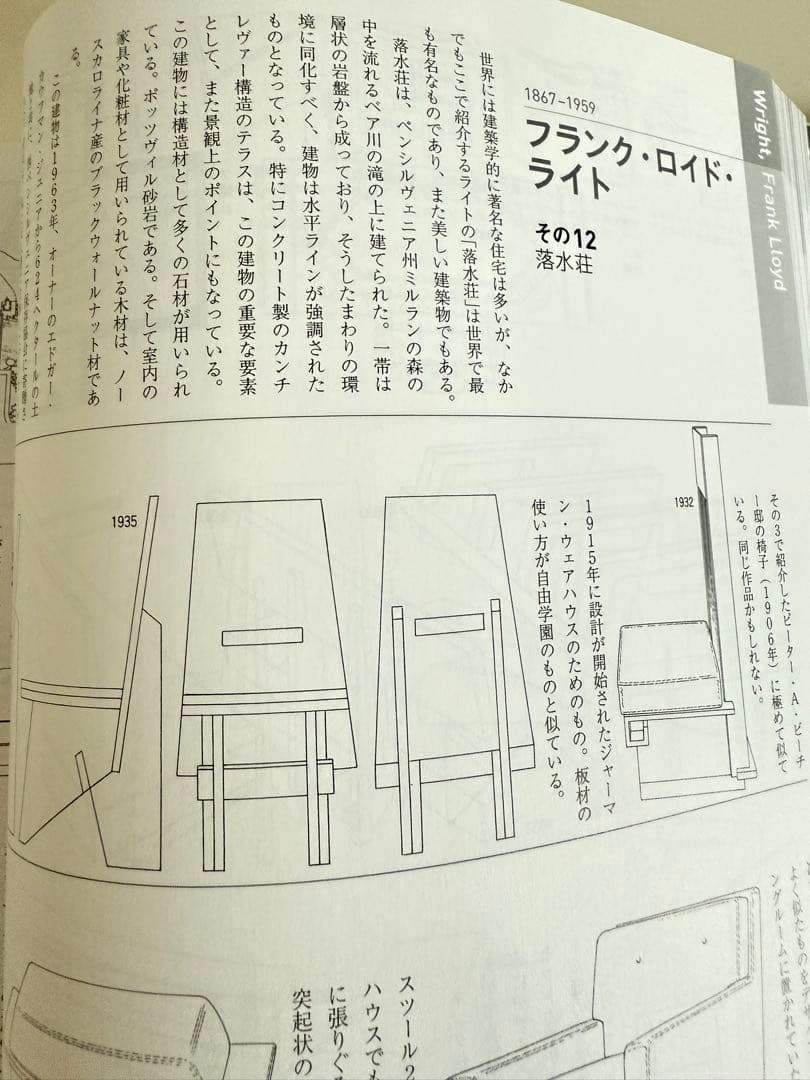 Wright, Frank Lloyd
1867–1959
フランク・ロイド・
ライト
その12
落水荘
世界には建築学的に著名な住宅は多いが、なか
でもここで紹介するライトの「落水荘」は世界で最
も有名なものであり、また美しい建築物でもある。
落水荘は、ペンシルヴェニア州ミルランの森の
中を流れるベア川の滝の上に建てられた。一帯は
層状の岩盤から成っており、そうしたまわりの環
境に同化すべく、建物は水平ラインが強調された
ものとなっている。特にコンクリート製のカンチ
レヴァー構造のテラスは、この建物の重要な要素
として、また景観上のポイントにもなっている。
この建物には構造材として多くの石材が用いられ
ている。ポッツヴィル砂岩である。そして室内の
家具や化粧材として用いられている木材は、ノー
スカロライナ産のブラックウォールナット材であ
る。
この建物は1963年、オーナーのエドガー・
カウフマン・ジュニアから624ヘクタールの土
その3で紹介したピーター・A・ビーチ
ー邸の椅子(1906年)に極めて似て
いる。同じ作品かもしれない。
1932
1915年に設計が開始されたジャーマ
ン・ウェアハウスのためのもの。板材の
使い方が自由学園のものと似ている。
1935
よく似たものをデ
ングルームに置かれていた
スツール2
ハウスでも
に張りぐ
突起状の